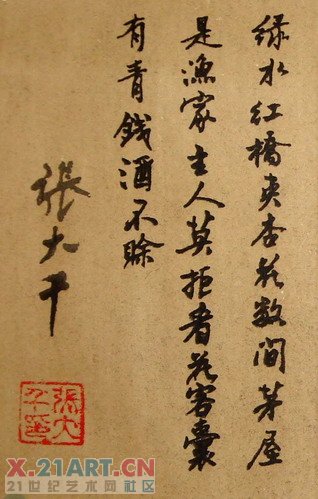 绿水红橋夹杏花数间茅屋
是渔家主人莫拒看花客囊
有青錢酒不賒
張大千
張大千印
X.21ART.CN
21世纪艺术网社区